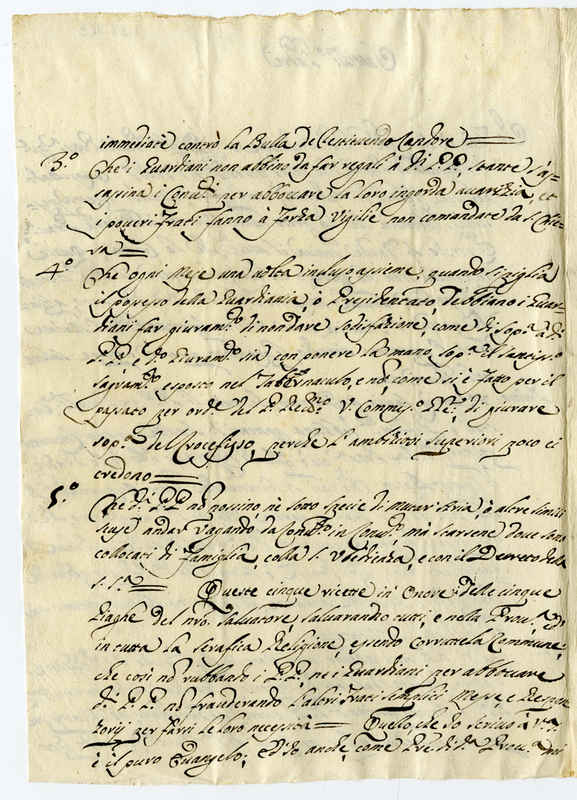 immediate contro la Bulla de
3.° Che i Guardiani non abbino da far regali à di P.P. stante s'as-
sassina i Conv.ti per abboccare la loro ingorda avarizia, et
i poveri Frati fanno à forza Vigilie non comandate da S. Chie-
sa
4.° Che ogni Mese una volta incluso assieme, quando si piglia
il possesso della Guardiania, ò Presidentato, debbiano i Guar-
diani far giuram.to di non dare sodisfazione, come di sop.a à di
P.P. e d.o Giuram.to sia con ponere la mano sop.a il Santiss.o
Sagram.to esposto nel Tabernaculo, e nò come si è fatto per il
passato per ord.e del P. V. Commis.o di giurare
sop.a del Crocefisso, perche l'ambiziosi Superiori poco ci
credono
5.° Che di P.P. nò possino, nè sotto spezie di ò altre simili
scuse andar vagando da Conv.to in Conv.to, mà starsene dove sono
collocati di famiglia, colla S. Ubidienza, e con il Decreto della
S. S.a Queste cinque ricette in onore delle cinque
Piaghe del nro. Salvatore, salvarando tutti, e nella Prov.a, et
in tutta la Serafica Religione, essendo corruttela Commune,
che così nò rubbando i P.P. ne i Guardiani per abboccare
di P.P. nò frauderando l'altri Frati semplici Messe, e
per farsi le loro necessità Quello, che Io scrivo à V.a
è il puro Evangelo; anche, come P.re di d.a Prov.a